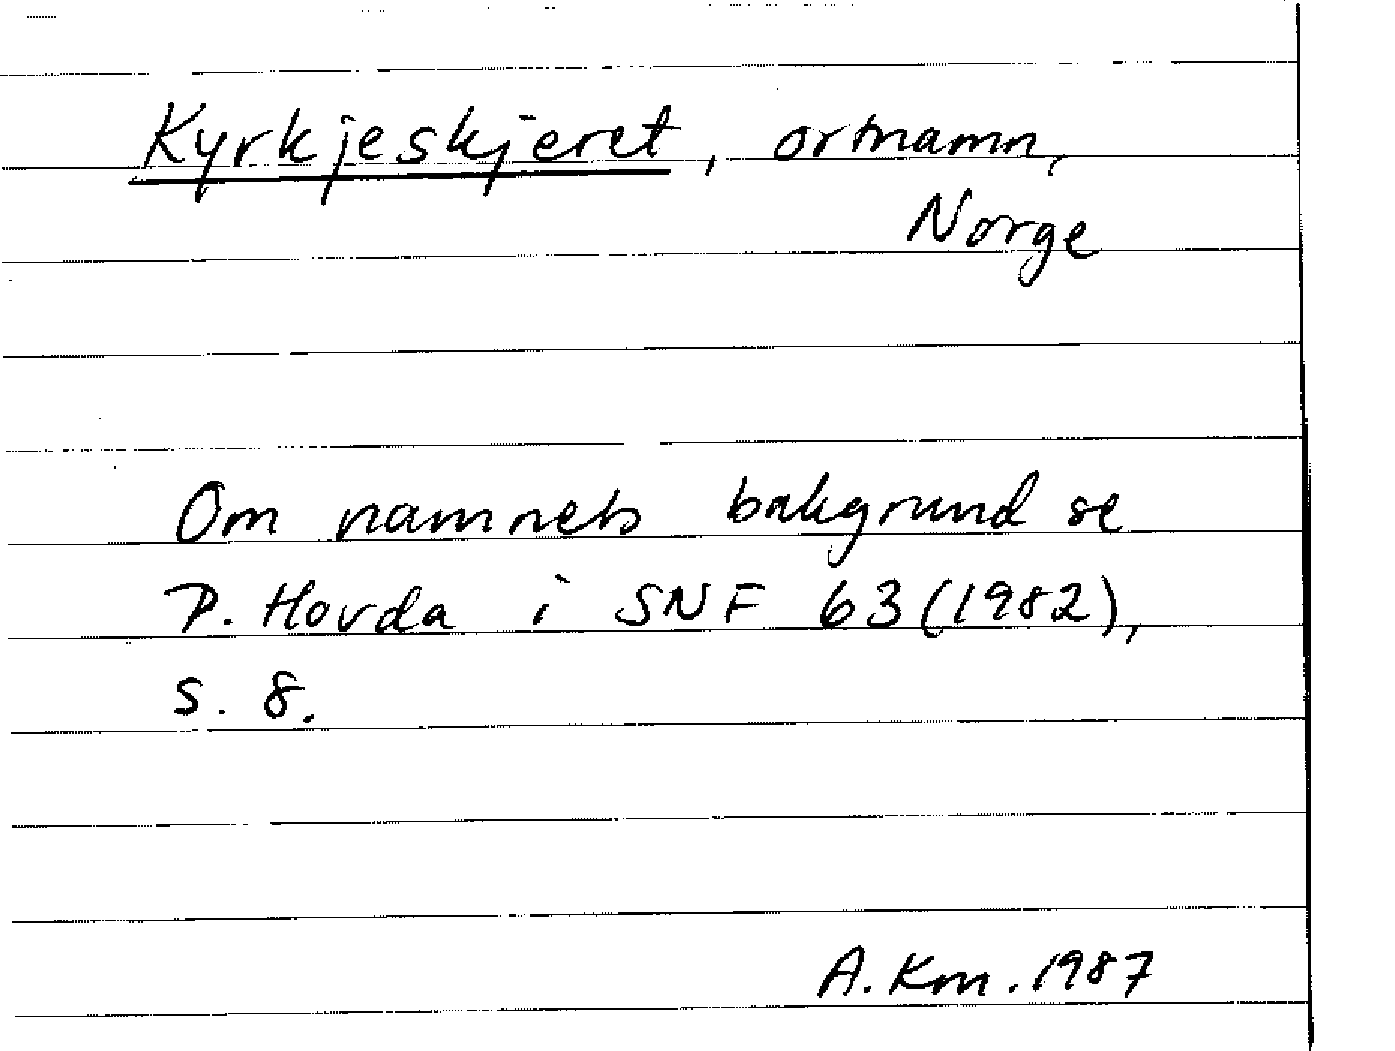 Kyrkjeskjeret, ortnamn,
Norge
Om namnets bakgrund se
P. Hovda i SNF 63 (1982),
s. 8.
A. Km. 1987